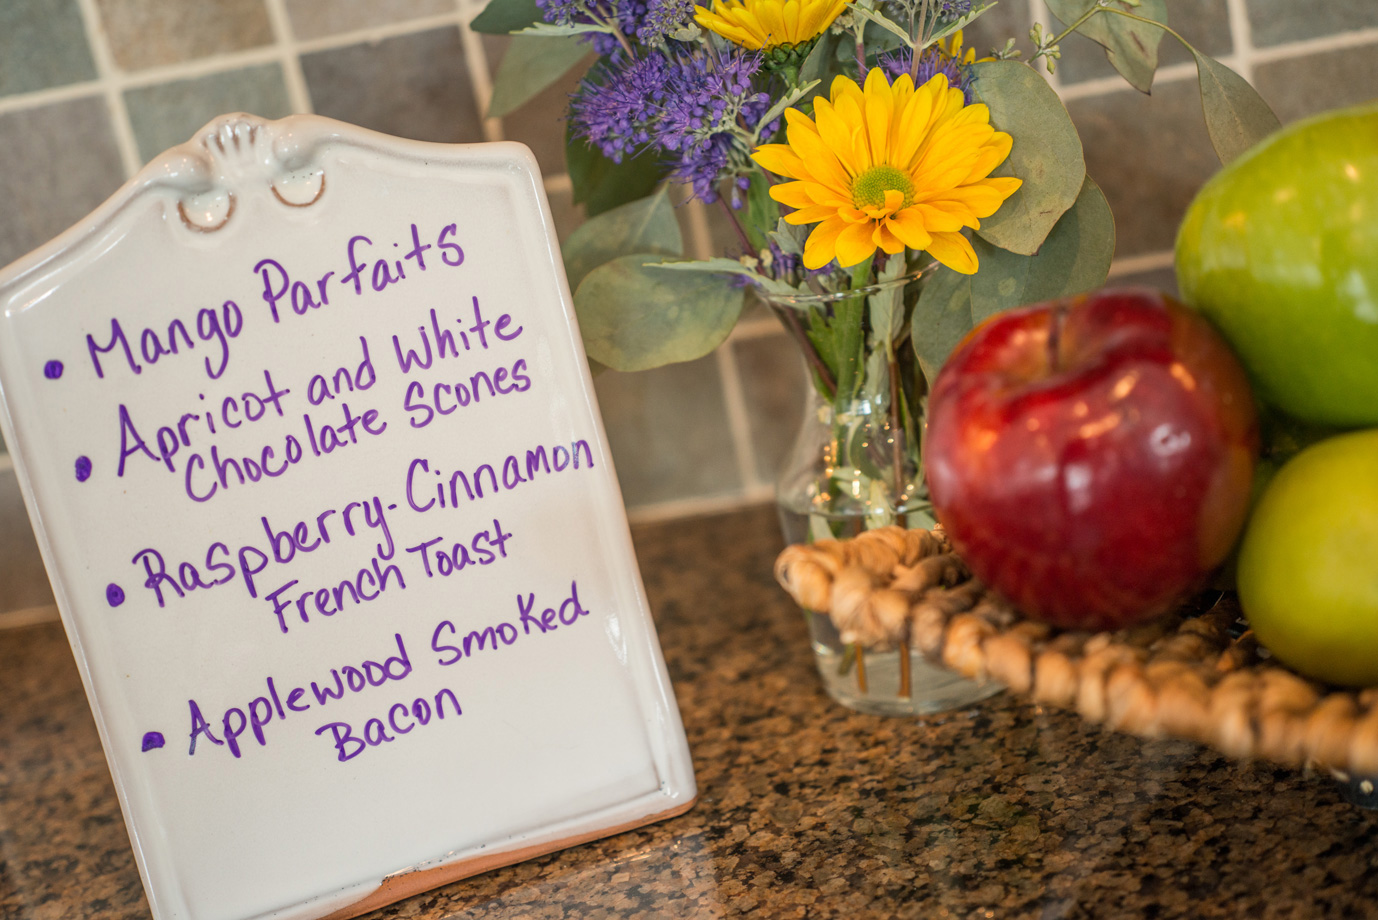 • Mango Parfaits
• Apricot and White
Chocolate Scones
• Raspberry-Cinnamon
French Toast
• Applewood Smoked
Bacon